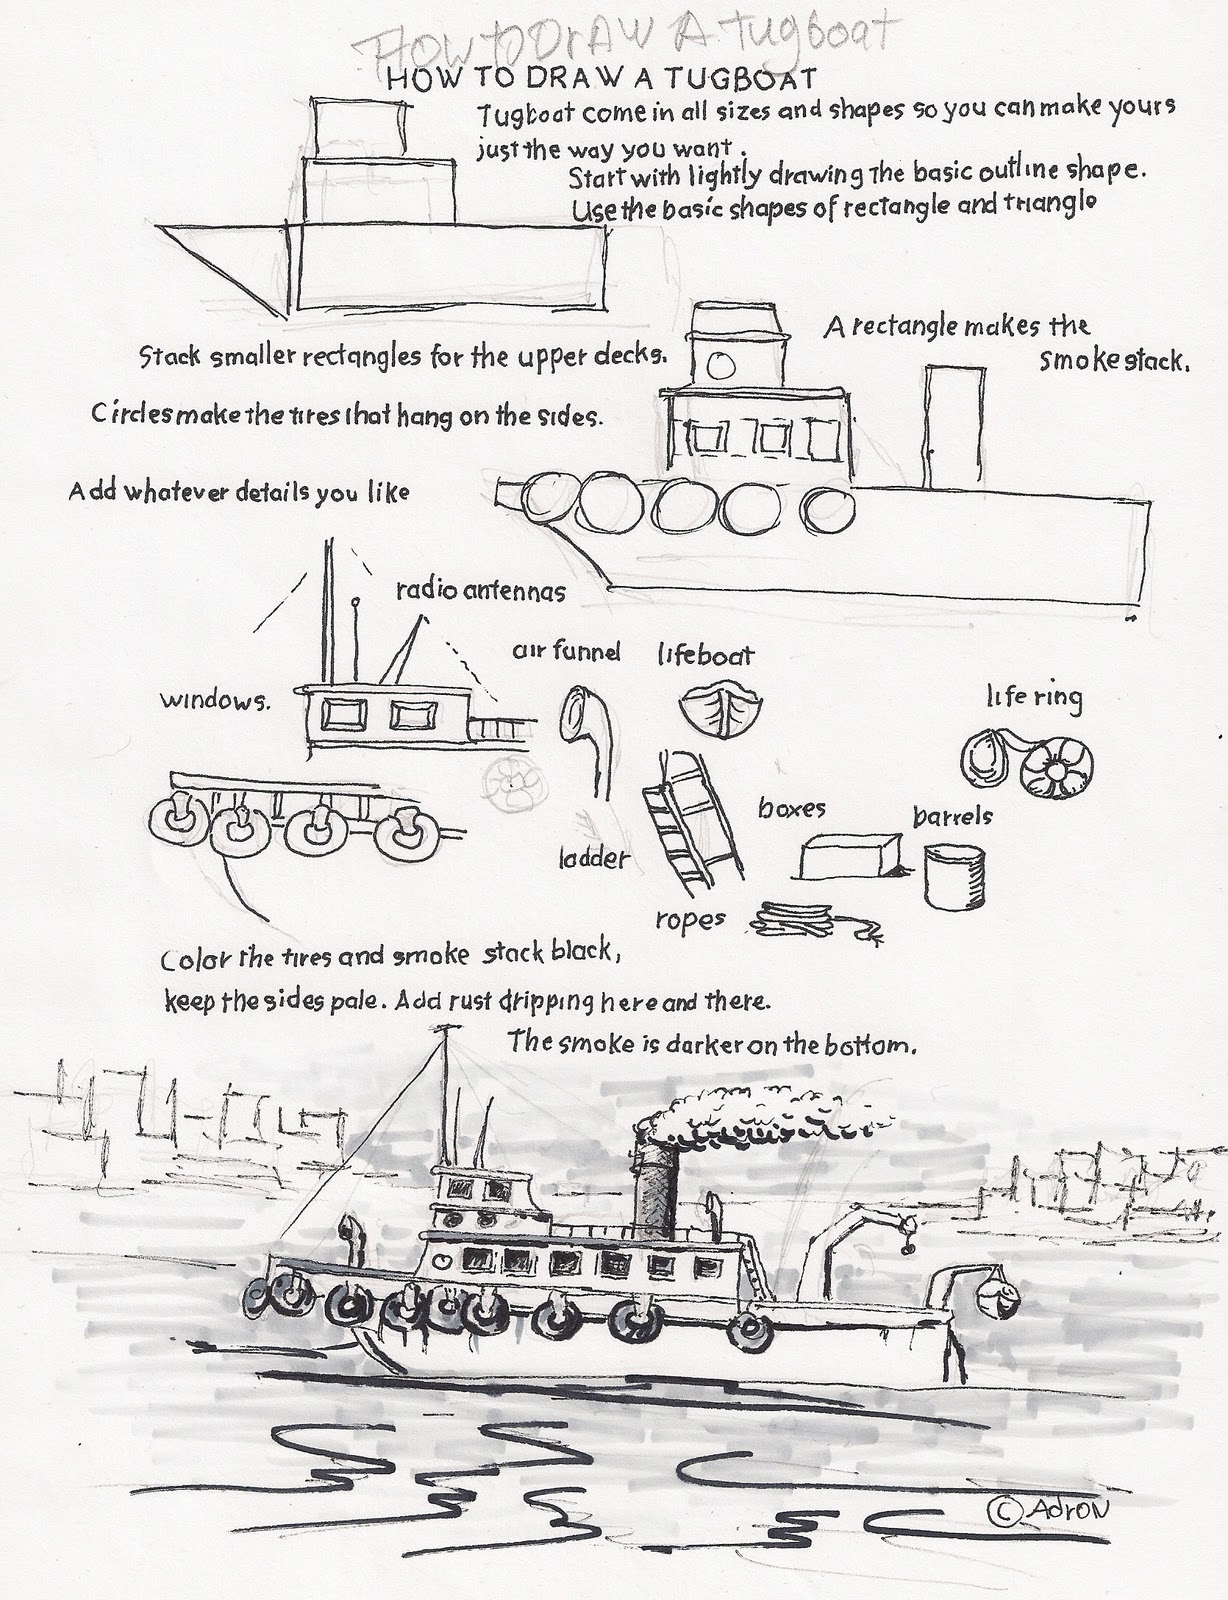 HOW to DrAW A tugboat
HOW TO DRAW A TUGBOAT
Tugboat come in all sizes and shapes so you can make yours
just the way you want.
Start with lightly drawing the basic outline shape.
Use the basic shapes of rectangle and triangle
A rectangle makes the
smoke stack.
Stack smaller rectangles for the upper decks.
Circles make the tires that hang on the sides.
Add whatever details you like
radio antennas
air funnel
lifeboat
windows.
life ring
boxes
barrels
ladder
ropes
Color the tires and smoke stack black,
keep the sides pale. Add rust dripping here and there.
The smoke is darker on the bottom.
© Adron